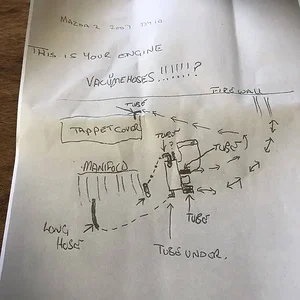 MAZDA 2 2007
THIS IS YOUR ENGINE
VACUMEHOSES !!!!!!?
FIREWALL
TUBE
TAPPET COVER
TUBE
?
TUBE
MANIFOLD
TUBE
LONG
HOSE
TUBE UNDER.